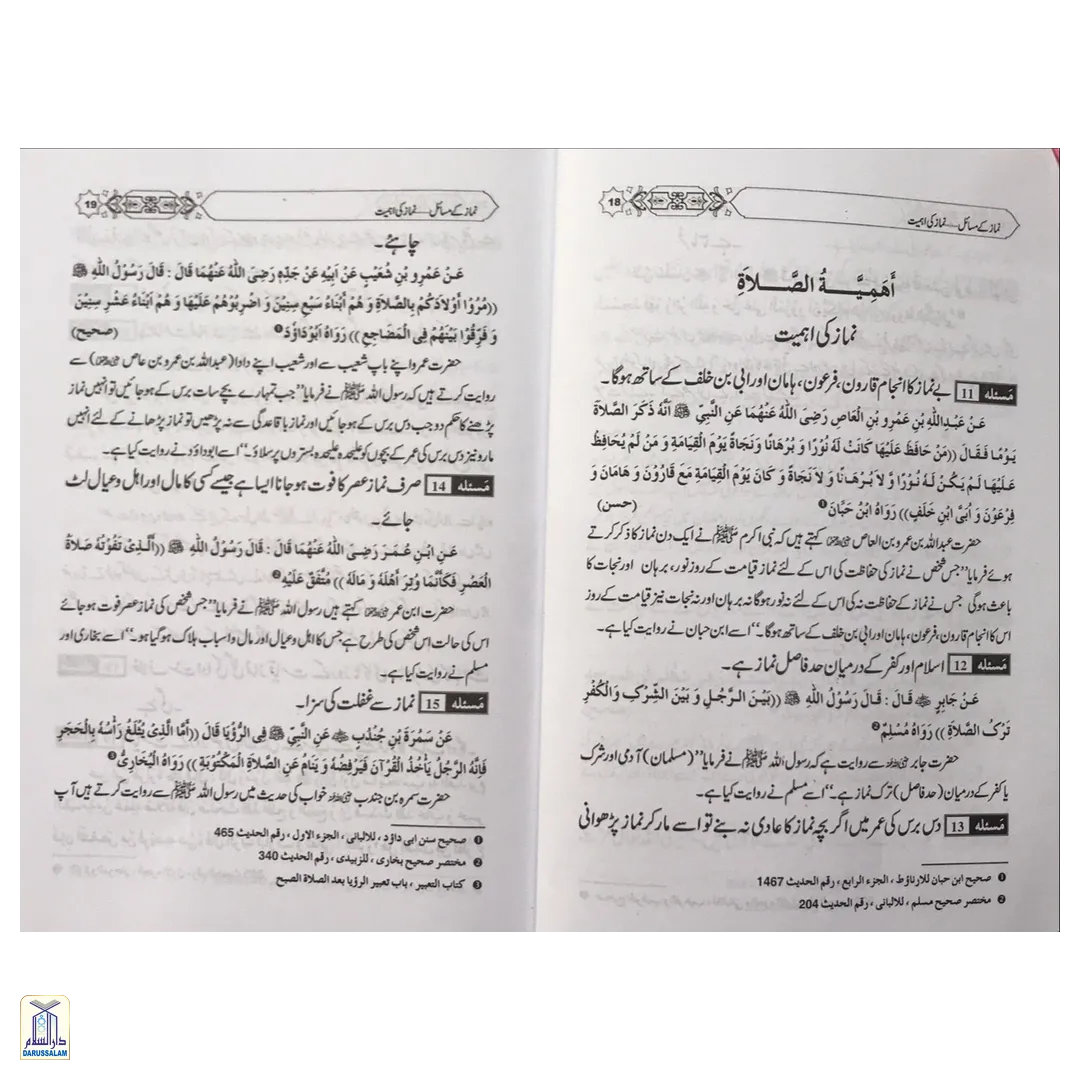 18
نماز کے مسائل.....نماز کی اہمیت
أَهَمِيَّةُ الصَّلَاةِ
نماز کی اہمیت
مَسئلہ 11 بے نماز کا انجام قارون، فرعون، ہامان اور ابی بن خلف کے ساتھ ہوگا۔
عَنْ عَبْدِاللّٰهِ بْنِ عَمْرِو بْنِ الْعَاصِ رَضِىَ اللّٰهُ عَنْهُمَا عَنِ النَّبِيِّ ﷺ اَنَّهُ ذَكَرَ الصَّلاَةَ
يَوْمًا فَقَالَ ((مَنْ حَافَظَ عَلَيْهَا كَانَتْ لَهُ نُوْرًا وَ بُرْهَانًا وَنَجَاةً يَوْمَ الْقِيَامَةِ وَ مَنْ لَمْ يُحَافِظْ
عَلَيْهَا لَمْ يَكُنْ لَهُ نُوْرًا وَّ لاَ بُرْهَانًا وَ لاَ نَجَاةً وَ كَانَ يَوْمَ الْقِيَامَةِ مَعَ قَارُوْنَ وَ هَامَانَ وَ
فِرْعَوْنَ وَ اُبَىِّ ابْنِ خَلَفٍ)) رَوَاهُ ابْنُ حَبَّانَ❶ (حسن)
حضرت عبداللہ بن عمرو بن العاص رضی اللہ عنہ کہتے ہیں کہ نبی اکرم ﷺ نے ایک دن نماز کا ذکر کرتے
ہوئے فرمایا ”جس شخص نے نماز کی حفاظت کی اس کے لئے نماز قیامت کے روز نور، برہان اور نجات کا
باعث ہوگی جس نے نماز کے حفاظت نہ کی اس کے لئے نہ نور ہوگا نہ برہان اور نہ نجات نیز قیامت کے روز
اس کا انجام قارون، فرعون، ہامان اور ابی بن خلف کے ساتھ ہوگا۔“ اسے ابن حبان نے روایت کیا ہے۔
مَسئلہ 12 اسلام اور کفر کے درمیان حد فاصل نماز ہے۔
عَنْ جَابِرٍ رضی اللہ عنہ قَالَ : قَالَ رَسُوْلُ اللّٰهِ ﷺ ((بَيْنَ الرَّجُلِ وَ بَيْنَ الشِّرْكِ وَالْكُفْرِ
تَرْكُ الصَّلاَةِ )) رَوَاهُ مُسْلِمٌ❷
حضرت جابر رضی اللہ عنہ سے روایت ہے کہ رسول اللہ ﷺ نے فرمایا ”(مسلمان) آدمی اور شرک
یا کفر کے درمیان (حد فاصل) ترک نماز ہے۔“ اسے مسلم نے روایت کیا ہے۔
مَسئلہ 13 دس برس کی عمر میں اگر بچہ نماز کا عادی نہ بنے تو اسے مار کر نماز پڑھوانی
❶ صحیح ابن حبان للارناؤط ، الجزء الرابع ، رقم الحدیث 1467
❷ مختصر صحیح مسلم ، للالبانی ، رقم الحدیث 204
19
نماز کے مسائل.....نماز کی اہمیت
چاہئے۔
عَنْ عَمْرِو بْنِ شُعَيْبٍ عَنْ اَبِيْهِ عَنْ جَدِّهِ رَضِىَ اللّٰهُ عَنْهُمَا قَالَ : قَالَ رَسُوْلُ اللّٰهِ ﷺ
((مُرُوْا اَوْلاَدَكُمْ بِالصَّلاَةِ وَ هُمْ اَبْنَاءُ سَبْعِ سِنِيْنَ وَ اضْرِبُوْهُمْ عَلَيْهَا وَ هُمْ اَبْنَاءُ عَشْرِ سِنِيْنَ
وَ فَرِّقُوْا بَيْنَهُمْ فِى الْمَضَاجِعِ )) رَوَاهُ اَبُوْدَاوُدَ❶ (صحیح)
حضرت عمرو اپنے باپ شعیب سے اور شعیب اپنے دادا (عبداللہ بن عمرو بن عاص رضی اللہ عنہ) سے
روایت کرتے ہیں کہ رسول اللہ ﷺ نے فرمایا ”جب تمہارے بچے سات برس کے ہو جائیں تو انہیں نماز
پڑھنے کا حکم دو جب دس برس کے ہو جائیں اور نماز باقاعدگی سے نہ پڑھیں تو نماز پڑھانے کے لئے انہیں
مارو نیز دس برس کی عمر کے بچوں کو علیحدہ علیحدہ بستروں پر سلاؤ۔“ اسے ابوداؤد نے روایت کیا ہے۔
مَسئلہ 14 صرف نماز عصر کا فوت ہو جانا ایسا ہے جیسے کسی کا مال اور اہل و عیال لٹ
جائے۔
عَنِ ابْنِ عُمَرَ رَضِىَ اللّٰهُ عَنْهُمَا قَالَ : قَالَ رَسُوْلُ اللّٰهِ ﷺ ((اَلَّذِىْ تَفُوْتُهُ صَلاَةُ
الْعَصْرِ فَكَاَنَّمَا وُتِرَ اَهْلَهُ وَ مَالَهُ )) مُتَّفَقٌ عَلَيْهِ❷
حضرت ابن عمر رضی اللہ عنہ کہتے ہیں رسول اللہ ﷺ نے فرمایا ”جس شخص کی نماز عصر فوت ہو جائے
اس کی حالت اس شخص کی طرح ہے جس کا اہل و عیال اور مال و اسباب ہلاک ہو گیا ہو۔“ اسے بخاری اور
مسلم نے روایت کیا ہے۔
مَسئلہ 15 نماز سے غفلت کی سزا۔
عَنْ سَمُرَةَ بْنِ جُنْدُبٍ رضی اللہ عنہ عَنِ النَّبِيِّ ﷺ فِى الرُّؤْيَا قَالَ ((اَمَّا الَّذِىْ يُثْلَغُ رَأْسُهُ بِالْحَجَرِ
فَاِنَّهُ الرَّجُلُ يَأْخُذُ الْقُرْآنَ فَيَرْفِضُهُ وَ يَنَامُ عَنِ الصَّلاَةِ الْمَكْتُوْبَةِ )) رَوَاهُ الْبُخَارِىُّ❸
حضرت سمرہ بن جندب رضی اللہ عنہ خواب کی حدیث میں رسول اللہ ﷺ سے روایت کرتے ہیں آپ
❶ صحیح سنن ابی داؤد ، للالبانی ، الجزء الاول ، رقم الحدیث 465
❷ مختصر صحیح بخاری ، للزبیدی ، رقم الحدیث 340
❸ کتاب التعبیر ، باب تعبیر الرؤیا بعد الصلاة الصبح
دارالسلام
DARUSSALAM